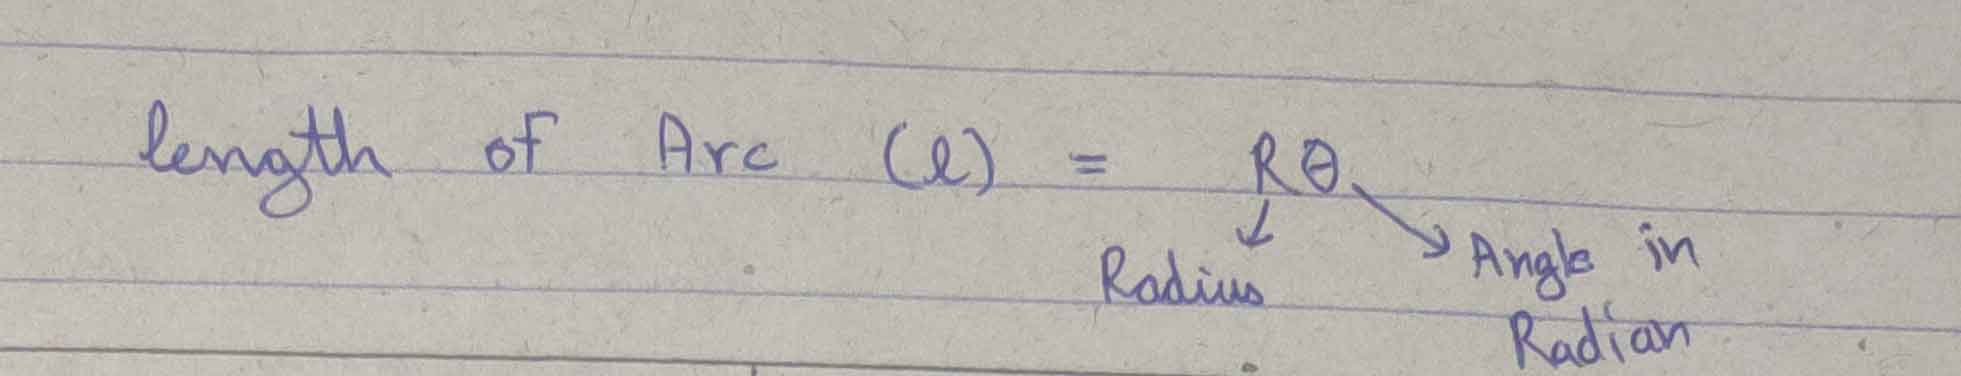 length of Arc (l) = Rθ
Radius
Angle in
Radian